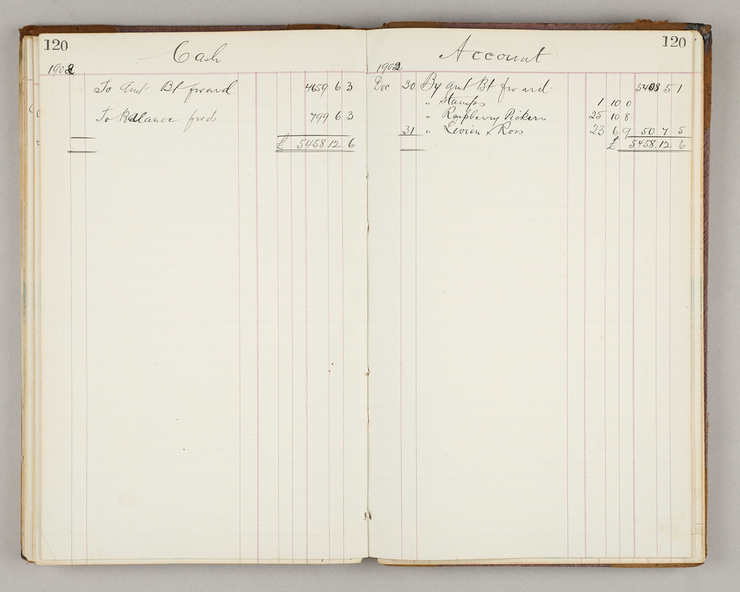 120
Cash
1902
To Amt Bt forward 4659 6 3
To Balance forwd 799 6 3
£ 5458 12 6
120
Account
1902
Dec 30 By Amt Bt forward 5408 5 1
" Stamps 1 10 0
" Raspberry Pickers 25 10 8
31 " Levien & Ross 23 6 9 50 7 5
£ 5458 12 6